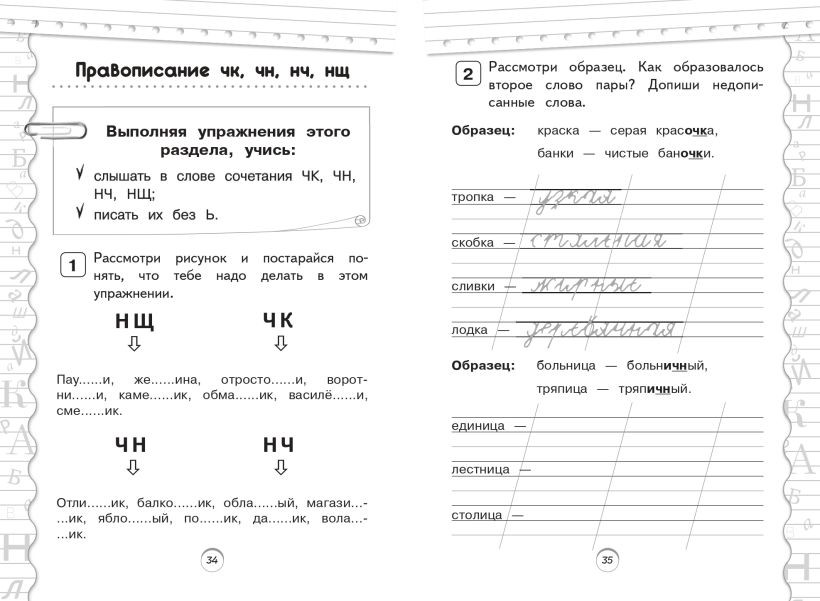 Правописание чк, чн, нч, нщ
Выполняя упражнения этого
раздела, учись:
слышать в слове сочетания ЧК, ЧН,
НЧ, НЩ;
писать их без Ь.
1 Рассмотри рисунок и постарайся по-
нять, что тебе надо делать в этом
упражнении.
НЩ ЧК
Пау......и, же......ина, отросто......и, ворот-
ни......и, каме......ик, обма......ик, василё......и,
сме......ик.
ЧН НЧ
Отли......ик, балко......ик, обла......ый, магази...-
...ик, ябло......ый, по......ик, да......ик, вола...-
...ик.
34
2 Рассмотри образец. Как образовалось
второе слово пары? Допиши недопи-
санные слова.
Образец: краска — серая красочка,
банки — чистые баночки.
тропка — узкая
скобка — стальная
сливки — жирные
лодка — деревянная
Образец: больница — больничный,
тряпица — тряпичный.
единица —
лестница —
столица —
35